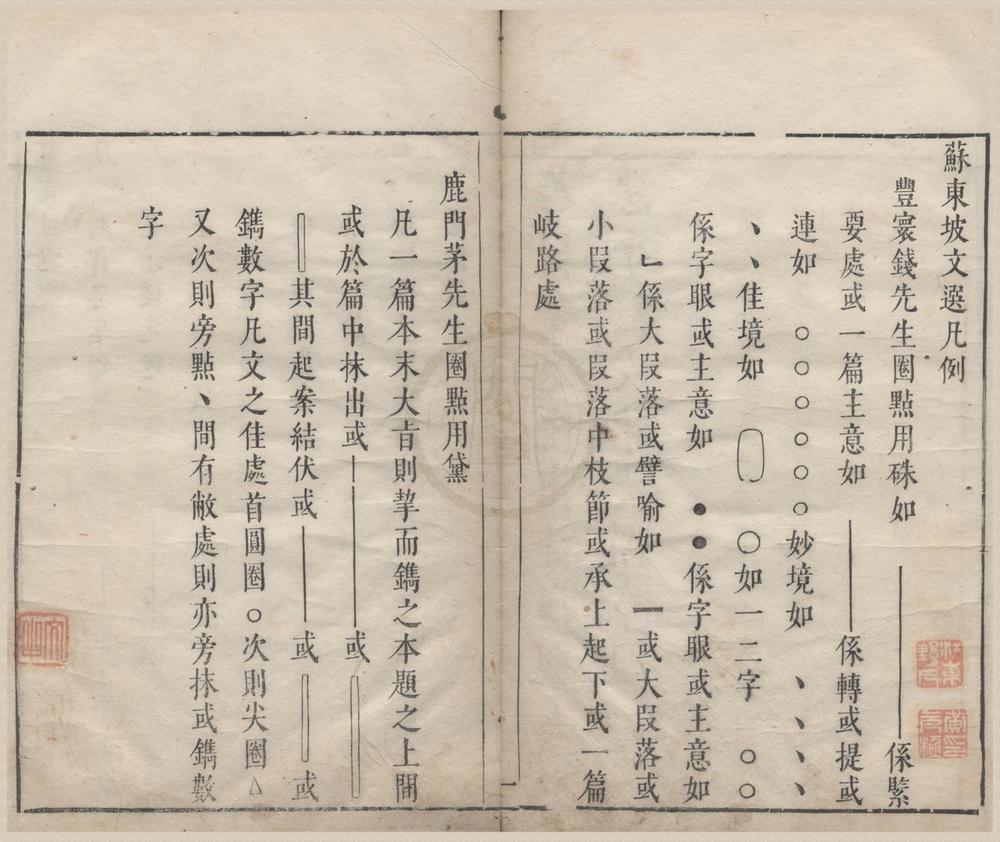 蘇東坡文選凡例
豐寰錢先生圈點用硃如 ——— 係緊
要處或一篇主意如 ——— 係轉或提或
連如 ○○○○○○妙境如 、、、、
、、佳境如 ▯ ○如一二字 ○○
係字眼或主意如 ●●係字眼或主意如
∟係大段落或譬喻如 —或大段落或
小段落或段落中枝節或承上起下或一篇
岐路處
鹿門茅先生圈點用黛
凡一篇本末大旨則挈而鐫之本題之上間
或於篇中抹出或 ——— 或 ▯
▯其間起案結伏或 ——— 或 ▯ 或
鐫數字凡文之佳處首圓圈○次則尖圈△
又次則旁點、間有敝處則亦旁抹或鐫數
字
一